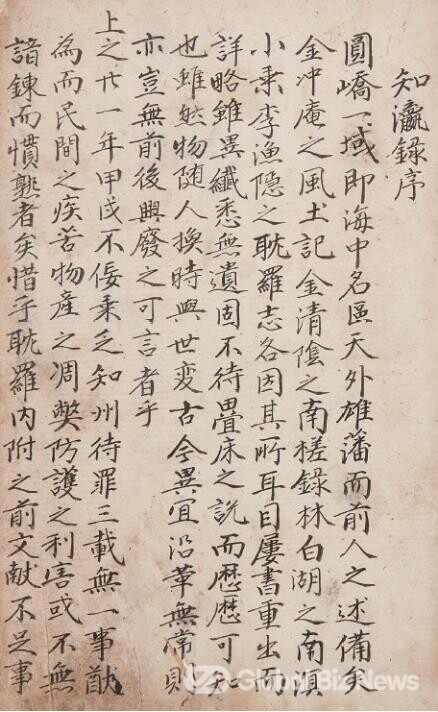 知瀛錄序
圓嶠一域即海中名區天外雄藩而前人之述備矣
金冲庵之風土記金清陰之南槎錄林白湖之南溟
小乘李漁隐之耽羅志各因其所耳目屢書重出而
詳略雖異纖悉無遺固不待疊床之說而歷歷可知
也雖然物随人換時與世変古今異宜沿革無常則
亦豈無前後興廢之可言者乎
上之廿一年甲戌不佞乗乏知州待罪三載無一事猷
為而民間之疾苦物產之凋弊防護之利害或不無
諳鍊而慣熟者矣惜乎耽羅内附之前文献不足事
Global BizNews